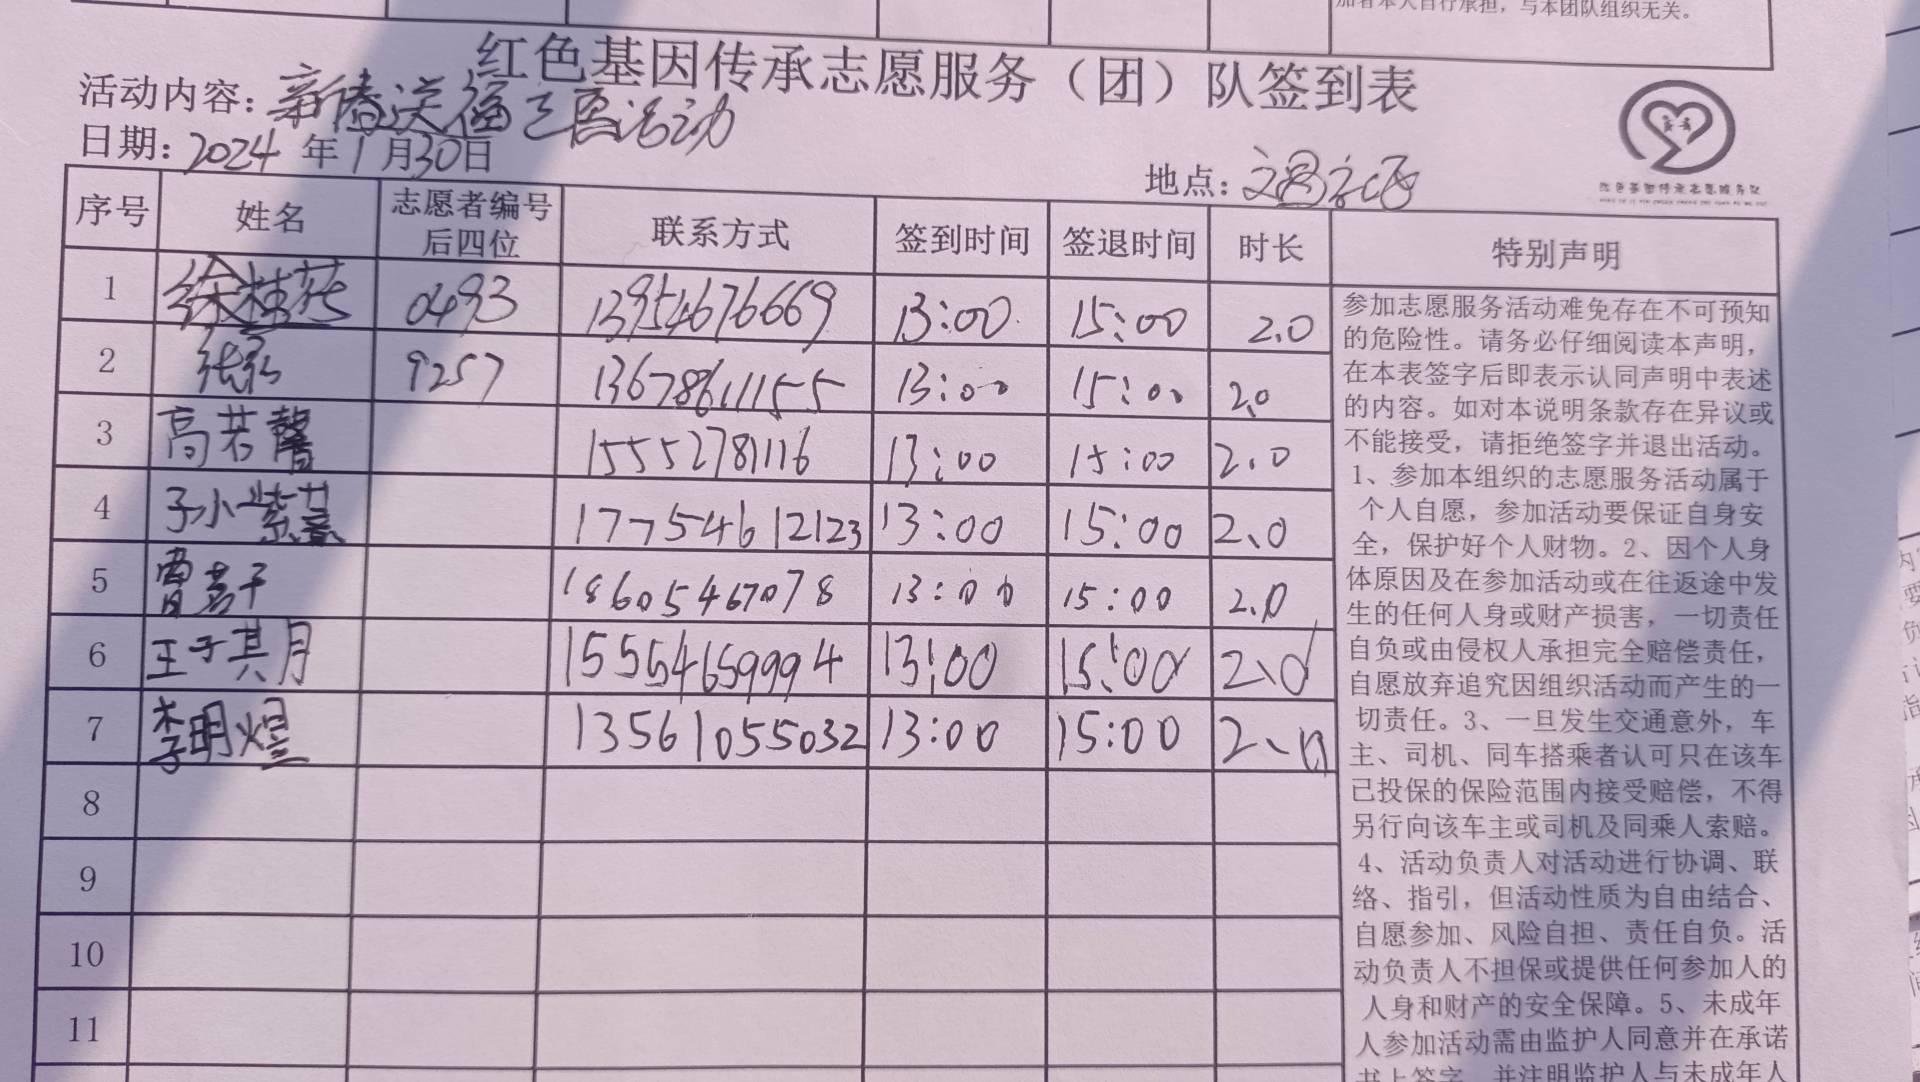 加者本人自行承担，与本团队组织无关。
红色基因传承志愿服务（团）队签到表
活动内容：新春送福 活动
日期：2024年1月30日
地点：
序号 姓名 志愿者编号后四位 联系方式 签到时间 签退时间 时长 特别声明
1 徐桂花 0493 13954676669 13:00 15:00 2.0
2 9257 13678611155 13:00 15:00 2.0
3 高若馨 15552781116 13:00 15:00 2.0
4 17754612123 13:00 15:00 2.0
5 曹若千 18605467078 13:00 15:00 2.0
6 王于其月 15554659994 13:00 15:00 2.0
7 李明煜 13561055032 13:00 15:00 2.0
8
9
10
11
参加志愿服务活动难免存在不可预知
的危险性。请务必仔细阅读本声明，
在本表签字后即表示认同声明中表述
的内容。如对本说明条款存在异议或
不能接受，请拒绝签字并退出活动。
1、参加本组织的志愿服务活动属于
个人自愿，参加活动要保证自身安
全，保护好个人财物。2、因个人身
体原因及在参加活动或在往返途中发
生的任何人身或财产损害，一切责任
自负或由侵权人承担完全赔偿责任，
自愿放弃追究因组织活动而产生的一
切责任。3、一旦发生交通意外，车
主、司机、同车搭乘者认可只在该车
已投保的保险范围内接受赔偿，不得
另行向该车主或司机及同乘人索赔。
4、活动负责人对活动进行协调、联
络、指引，但活动性质为自由结合、
自愿参加、风险自担、责任自负。活
动负责人不担保或提供任何参加人的
人身和财产的安全保障。5、未成年
人参加活动需由监护人同意并在承诺
书上签字，并注明监护人与未成年人